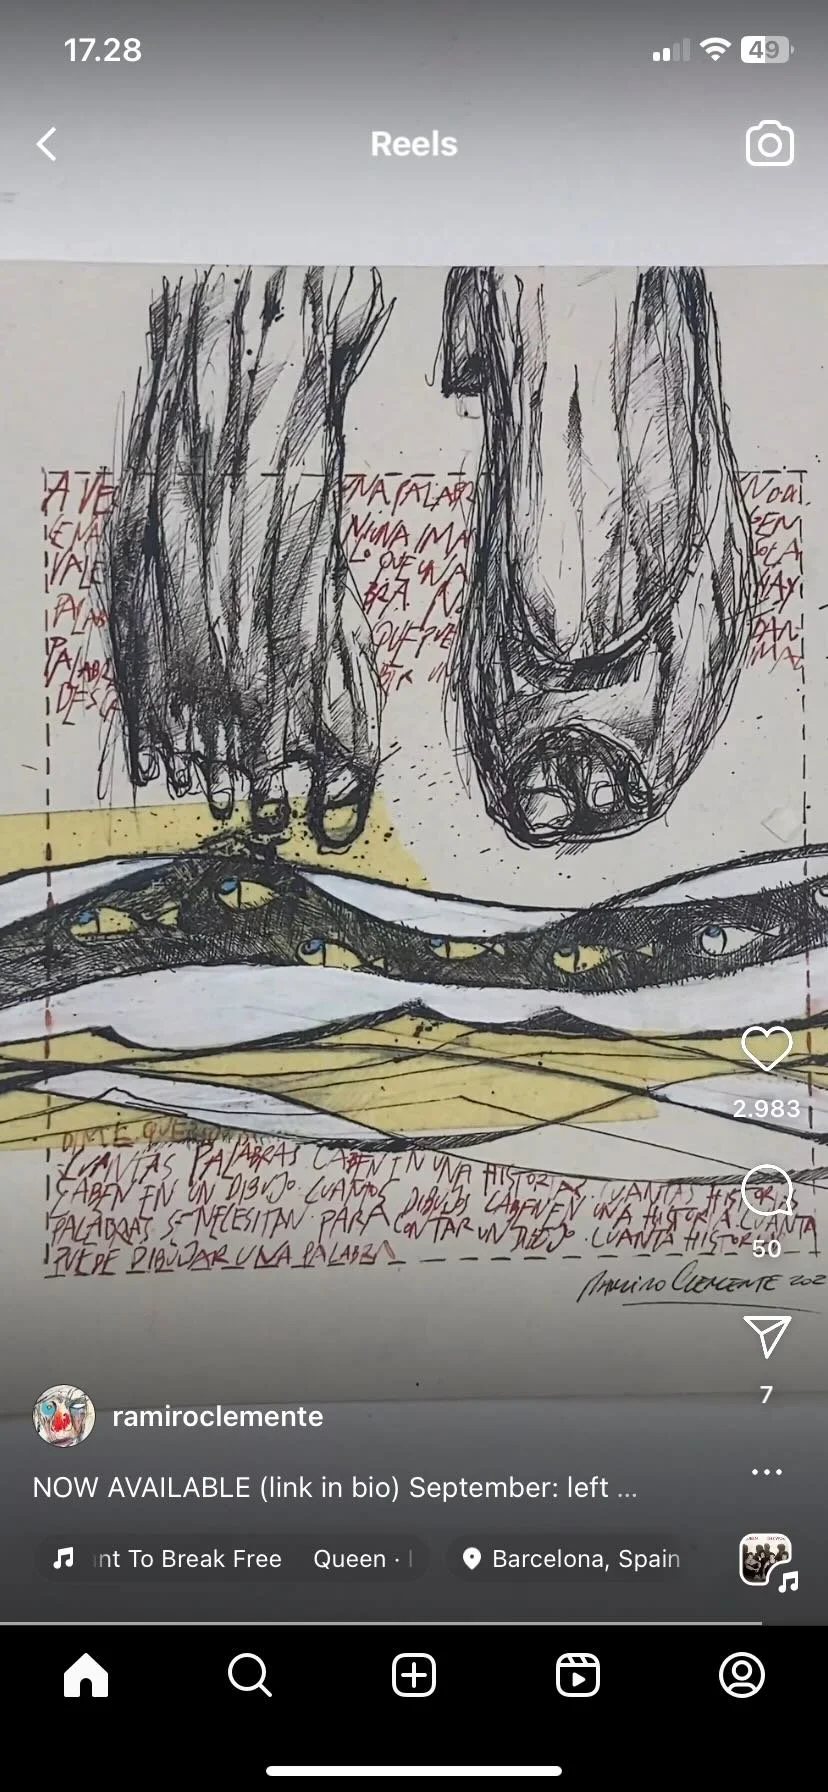 17.28
49
Reels
A VE
NA PALABR
NI UNA IMA
VALE
LO QUE UNA
BRA. N
HAY
PALAB
QUE PUE
PALABR
DAN
DESC
DIME QUE
CUANTAS PALABRAS CABEN EN UNA HISTORIA. CUANTAS HISTORIAS
CABEN EN UN DIBUJO. CUANTOS DIBUJOS CABEN EN UNA HISTORIA. CUANTA
PALABRAS SE NECESITAN PARA CONTAR UN DIBUJO. CUANTA HISTORIA
PUEDE DIBUJAR UNA PALABRA
RAMIRO CLEMENTE 202
2.983
50
7
ramiroclemente
NOW AVAILABLE (link in bio) September: left ...
nt To Break Free Queen ·
Barcelona, Spain